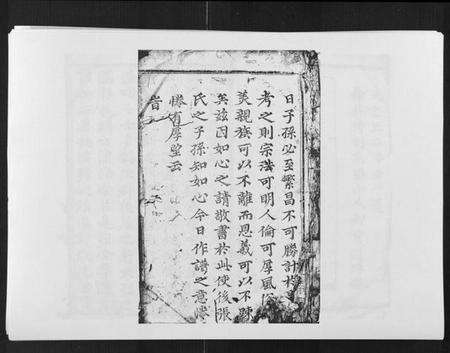 日子孫必至繁昌不可勝計
考之則宗法可明人倫可厚風
美親族可以不離而恩義可以不踈
矣茲因如心之請敬書於此使後張
氏之子孫知如心今日作譜之意惓
惓有厚望云
旹